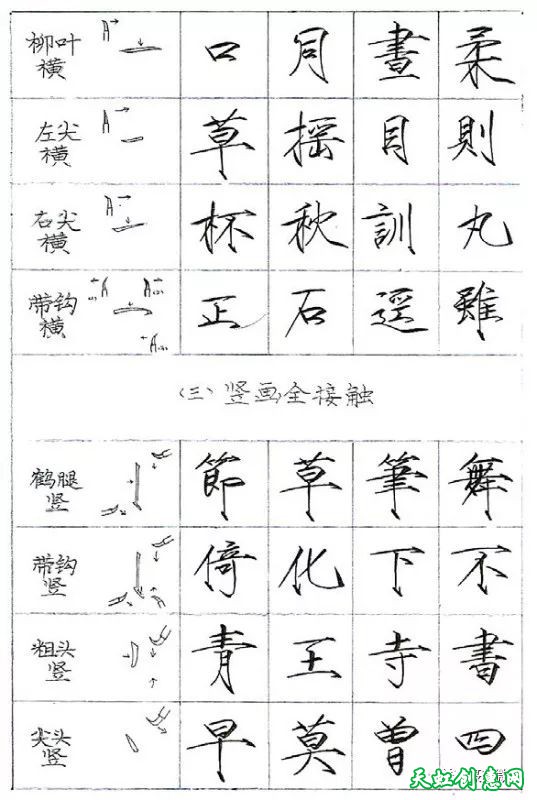 柳叶横 口 月 畫 柔
左尖横 草 摇 目 則
右尖横 杯 秋 訓 丸
带钩横 正 石 遥 雖
(三)竖画全接触
鹤腿竖 節 草 筆 舞
带钩竖 倚 化 下 不
粗头竖 青 王 寺 書
尖头竖 早 莫 曾 四
天虹创意网